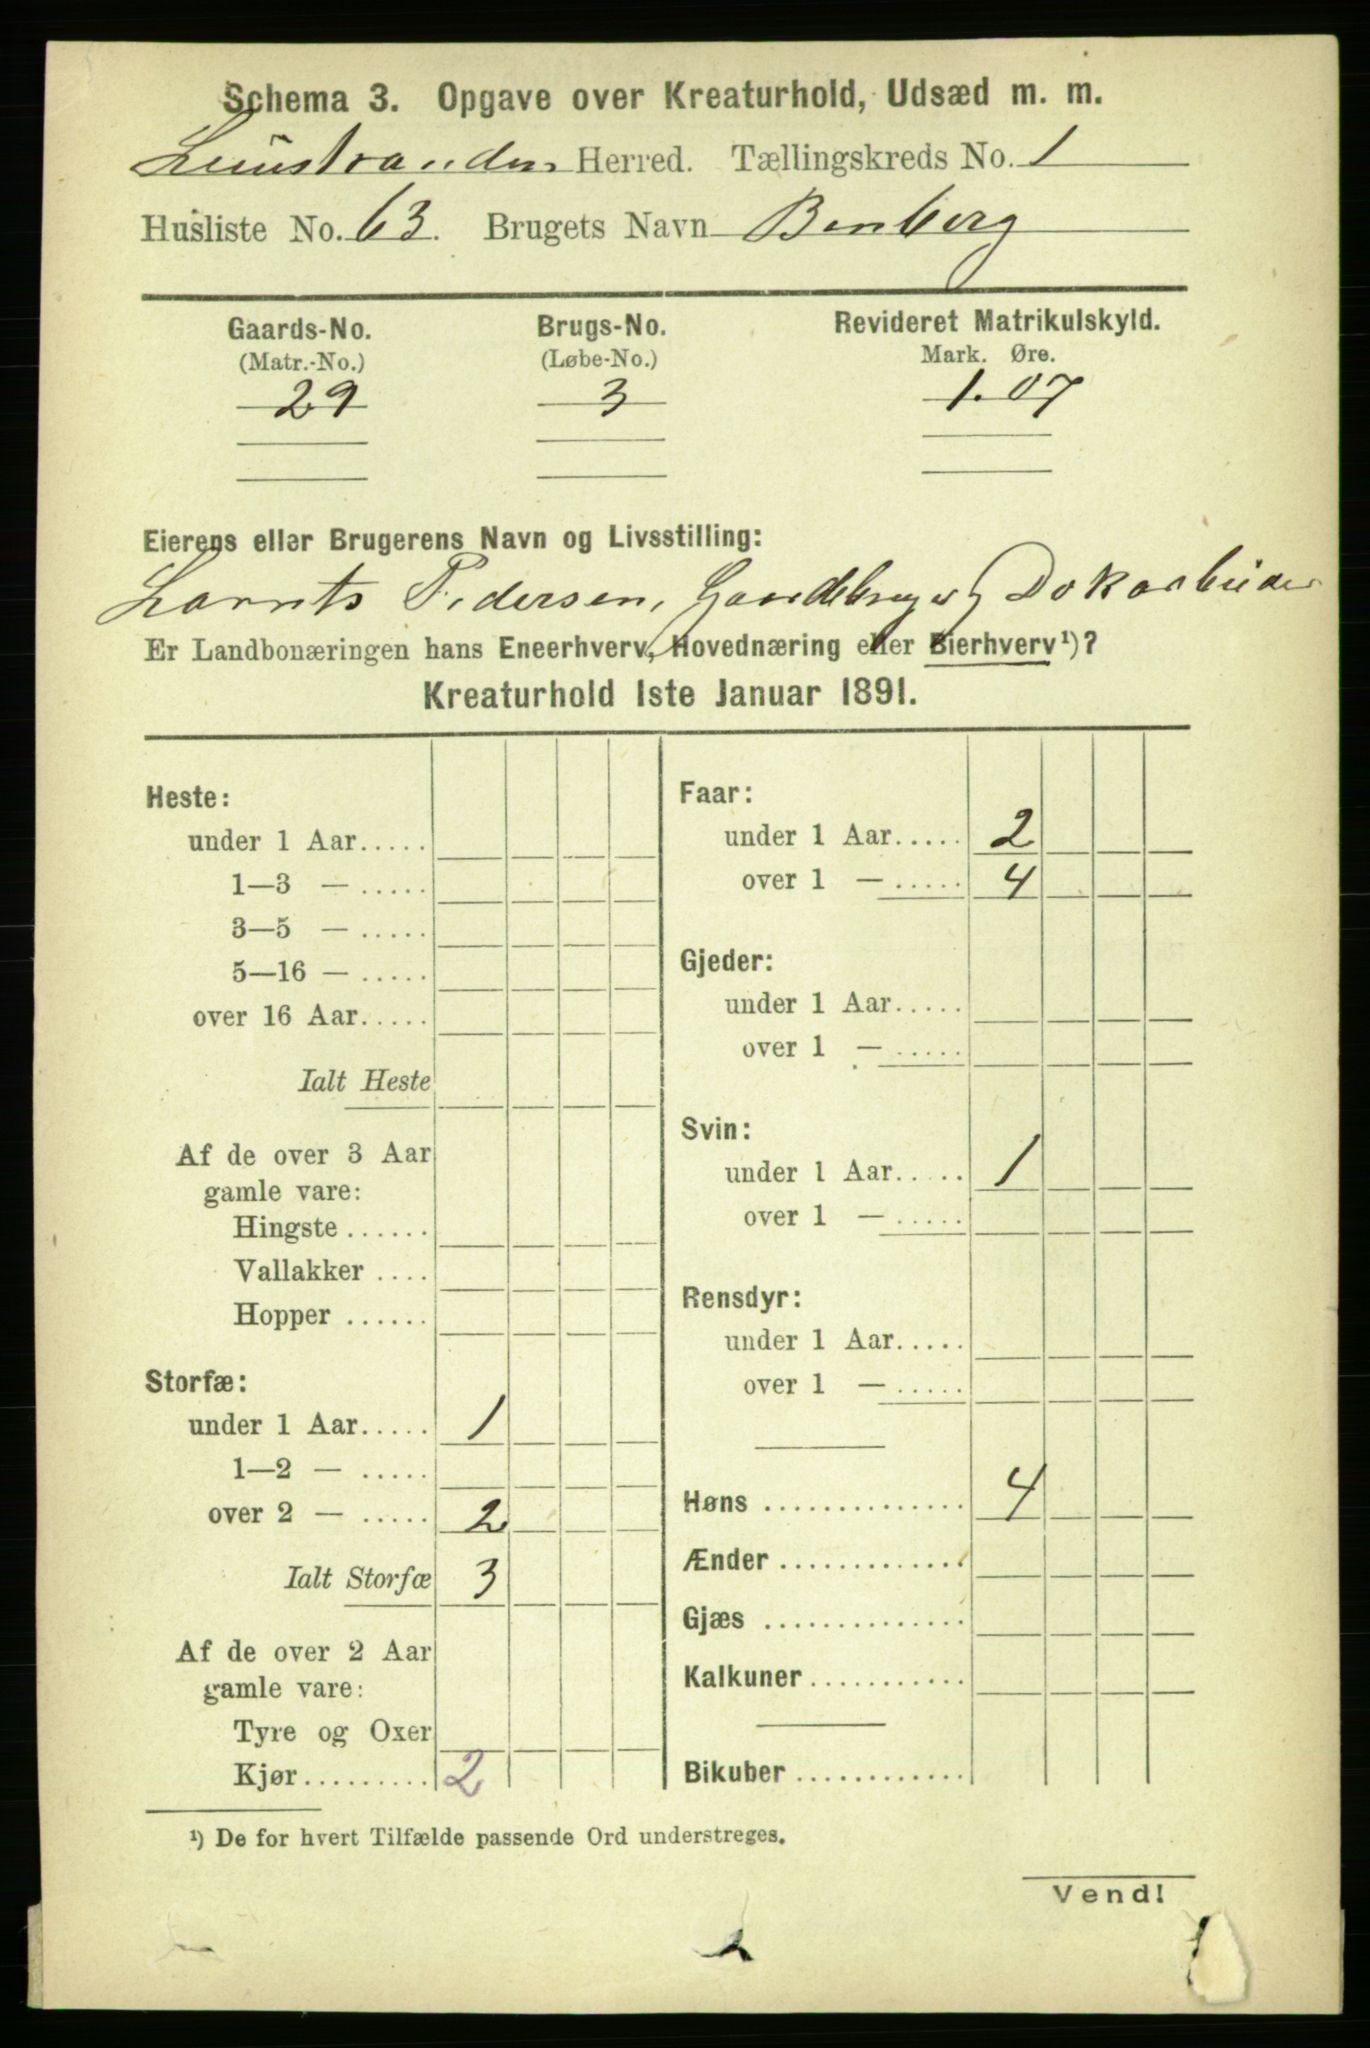 Schema 3. Opgave over Kreaturhold, Udsæd m. m.
Herred. Tællingskreds No. 1
Husliste No. 63. Brugets Navn Benberg
Gaards-No. Brugs-No. Revideret Matrikulskyld.
(Matr.-No.) (Løbe-No.) Mark. Øre.
29 3 1.07
Eierens eller Brugerens Navn og Livsstilling:
Pedersen, Gaardbruger
Er Landbonæringen hans Eneerhverv, Hovednæring eller Bierhverv¹)?
Kreaturhold 1ste Januar 1891.
Heste:
under 1 Aar.....
1—3 — .....
3—5 — .....
5—16 — .....
over 16 Aar.....
Ialt Heste
Af de over 3 Aar
gamle vare:
Hingste ......
Vallakker ....
Hopper ......
Storfæ:
under 1 Aar..... 1
1—2 — .....
over 2 — ..... 2
Ialt Storfæ 3
Af de over 2 Aar
gamle vare:
Tyre og Oxer
Kjør......... 2
Faar:
under 1 Aar..... 2
over 1 — ..... 4
Gjeder:
under 1 Aar.....
over 1 — .....
Svin:
under 1 Aar..... 1
over 1 — .....
Rensdyr:
under 1 Aar.....
over 1 — .....
Høns .............. 4
Ænder .............
Gjæs ..............
Kalkuner...........
Bikuber ............
¹) De for hvert Tilfælde passende Ord understreges.
Vend!